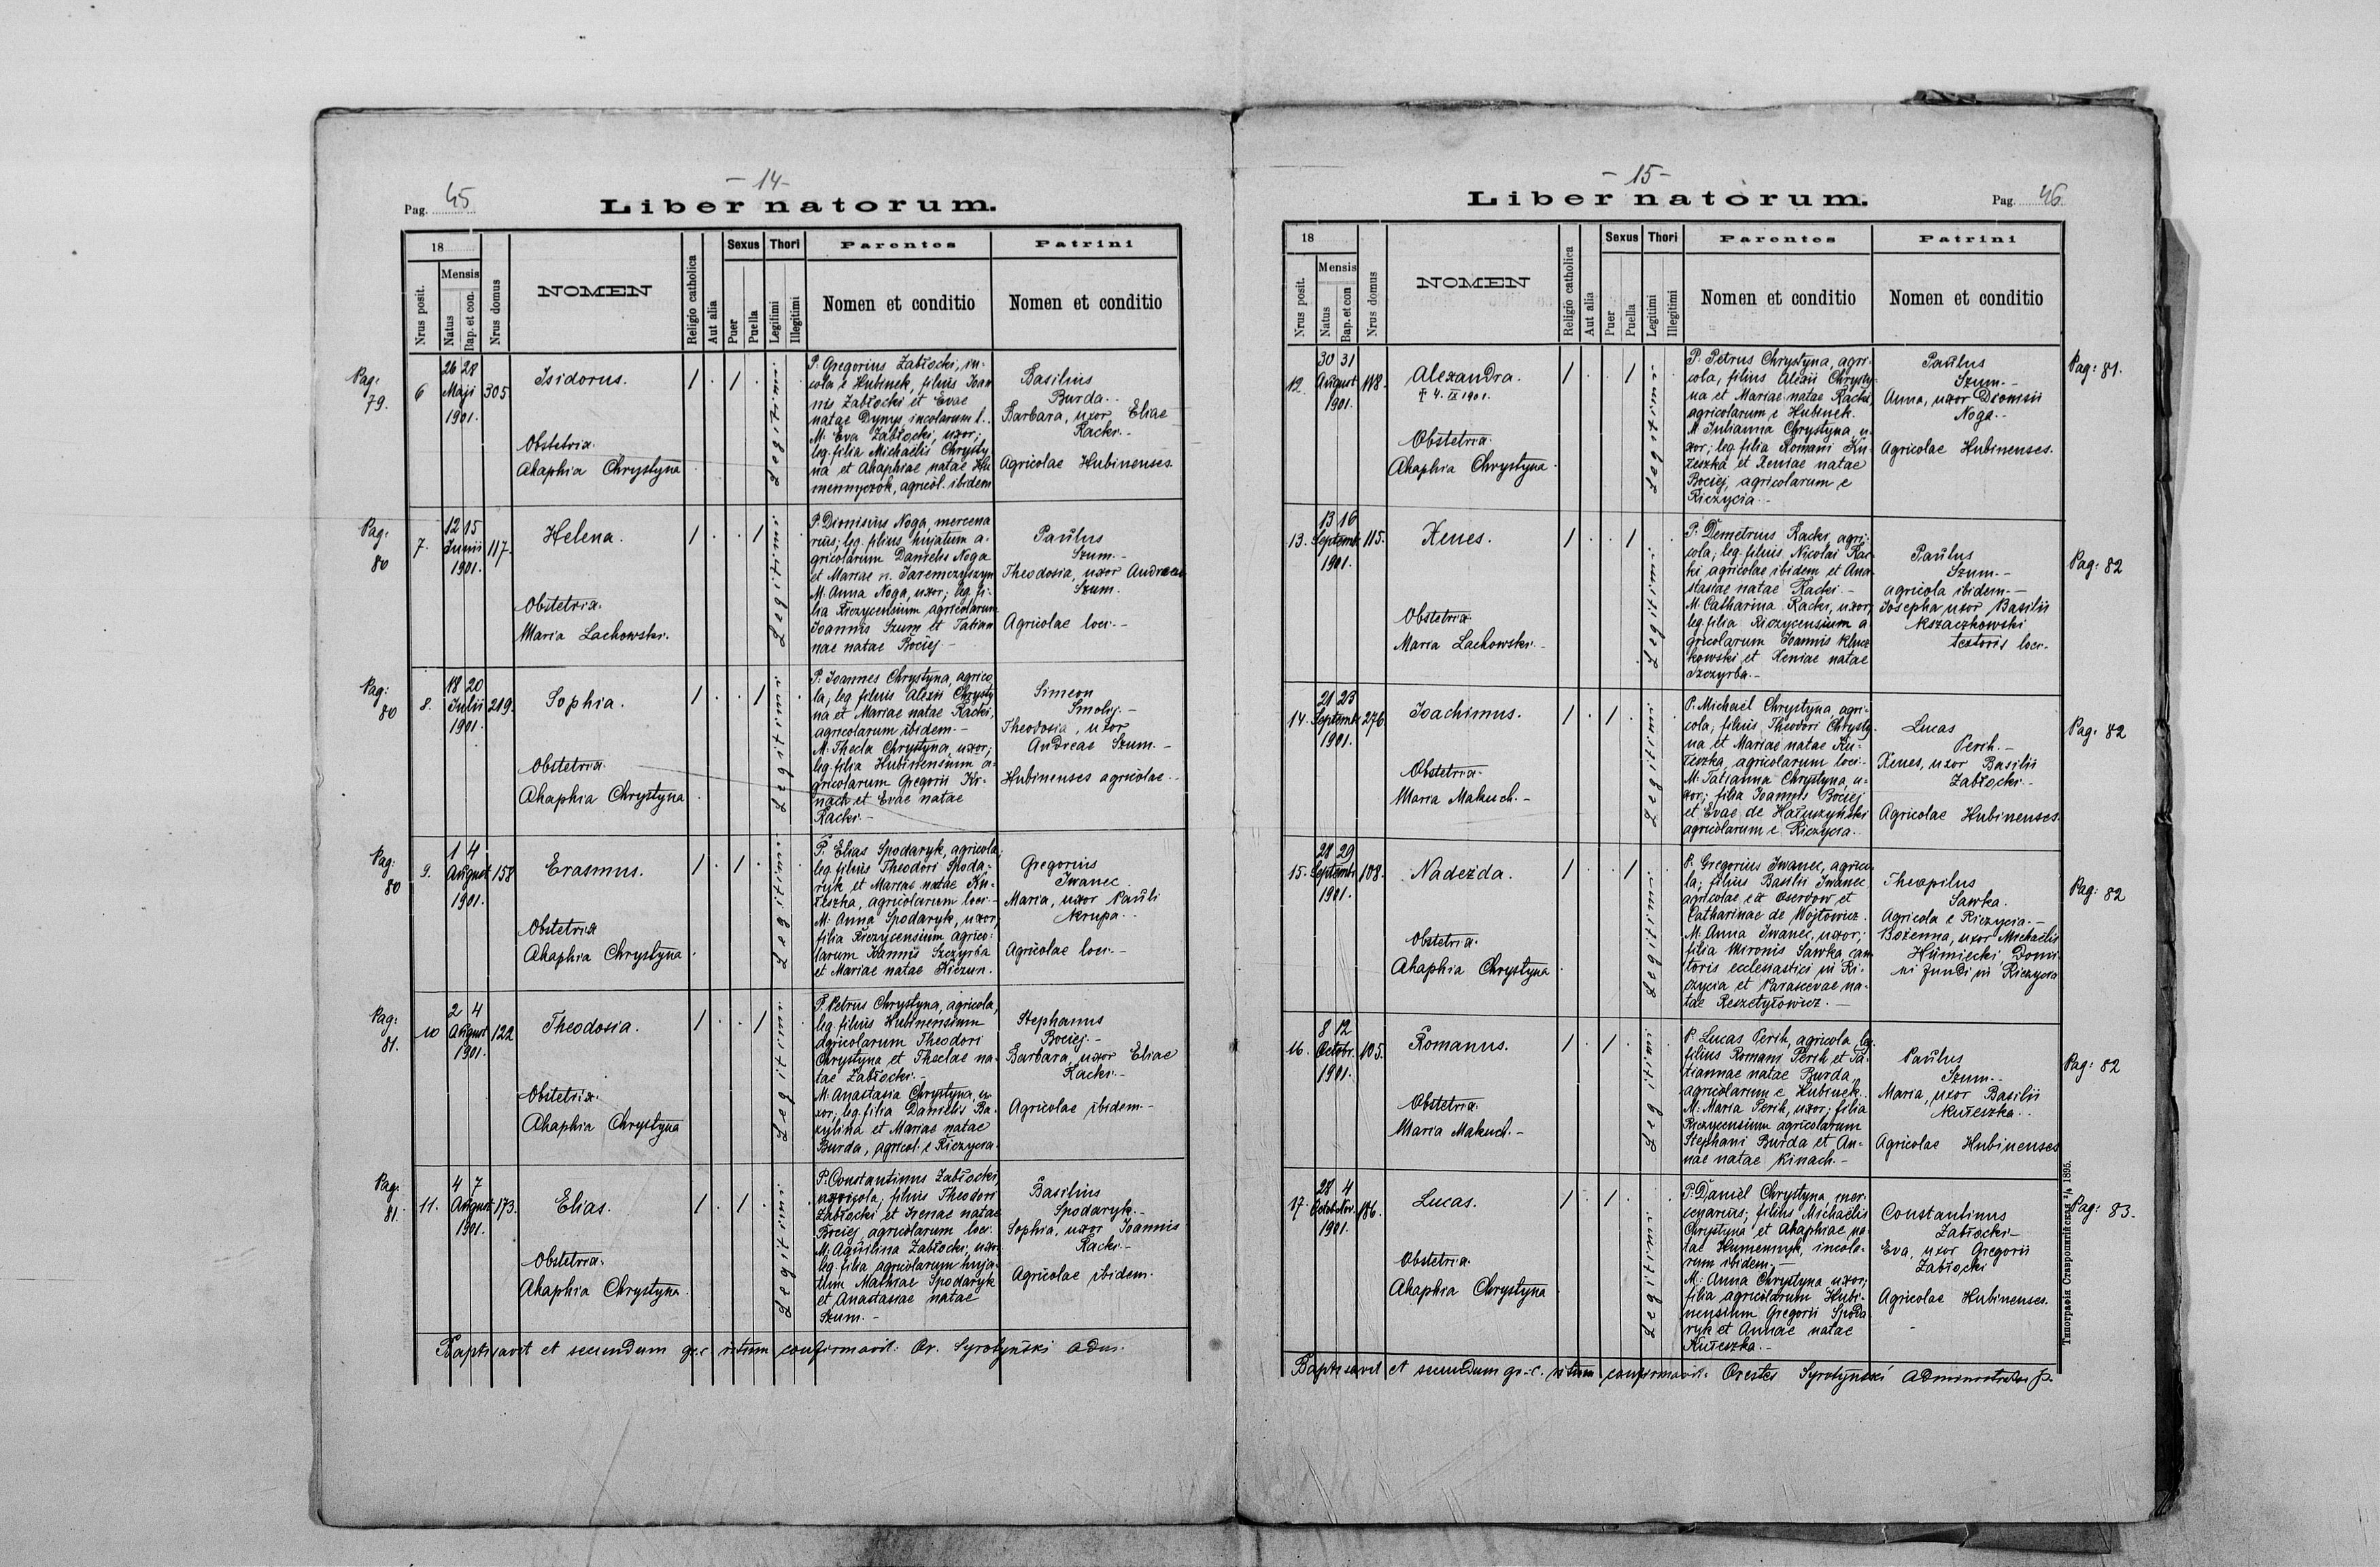 - 14 -
Pag. 45
Liber natorum.
18
Nrus posit.
Mensis
Natus
Bap. et con.
Nrus domus
NOMEN
Religio catholica
Aut alia
Sexus
Puer
Puella
Thori
Legitimi
Illegitimi
Parentes
Nomen et conditio
Patrini
Nomen et conditio
Pag: 79.
6
26 28
Maji
1901.
305
Isidorus.
Obstetrix.
Ahaphia Chrystyna
1 . 1 .
Legitimi
P. Gregorius Zabłocki, in-
cola e Hubinek, filius Joan
nis Zabłocki et Evae
natae Dymys, incolarum l.
M. Eva Zabłocki, uxor;
leg. filia Michaelis Chrysty
na et Ahaphiae natae Hu
mennyczok, agricol. ibidem
Basilius
Burda.-
Barbara, uxor Eliae
Racki.-
Agricolae Hubinenses.
Pag: 80
7.
12 15
Junii
1901.
117.
Helena.
Obstetrix.
Maria Lachowski.
1 . . 1
Legitimi
P. Dionisius Noga, mercena
rius; leg. filius hujatum a-
gricolarum Danielis Noga
et Mariae n. Jaremczyszyn
M. Anna Noga, uxor; leg. fi-
lia Riczycensium agricolarum
Joannis Szum et Tatian
nae natae Bociej.-
Paulus
Szum.-
Theodosia, uxor Andreae
Szum.
Agricolae loci.-
Pag: 80
8.
18 20
Julii
1901.
219.
Sophia.
Obstetrix.
Ahaphia Chrystyna
1 . . 1
Legitimi
P. Joannes Chrystyna, agrico
la; leg. filius Alexii Chrysty
na et Mariae natae Racki,
agricolarum ibidem.-
M. Thecla Chrystyna, uxor;
leg. filia Hubinensium a-
gricolarum Gregorii Ki-
nach et Evae natae
Racki.-
Simeon
Smolij.-
Theodosia, uxor
Andreae Szum.-
Hubinenses agricolae.-
Pag: 80
9.
1 4
August
1901.
158
Erasmus.
Obstetrix
Ahaphia Chrystyna
1 . 1 .
Legitimi
P. Elias Spodaryk, agricola;
leg. filius Theodori Spoda-
ryk et Mariae natae Ku-
łeszka, agricolarum loci.-
M: Anna Spodaryk, uxor;
filia Riczycensium agrico-
larum Joannis Szczyrba
et Mariae natae Kiczun.
Gregorius
Iwanec
Maria, uxor Pauli
Krupa.-
Agricolae loci.-
Pag: 81.
10
2 4
August
1901.
122
Theodosia.
Obstetrix.
Ahaphia Chrystyna
1 . . 1
Legitimi
P. Petrus Chrystyna, agricola,
leg. filius Hubinensium
agricolarum Theodori
Chrystyna et Theclae na-
tae Zabłocki.-
M: Anastasia Chrystyna, u-
xor; leg. filia Danielis Ba-
zylina et Mariae natae
Burda, agricol. e Riczycia.
Stephanus
Bociej.-
Barbara, uxor Eliae
Racki.-
Agricolae ibidem.-
Pag. 81.
11.
4 7
August
1901.
173.
Elias.
Obstetrix.
Ahaphia Chrystyna.
1 . 1 .
Legitimi
P. Constantinus Zabłocki,
agricola; filius Theodori
Zabłocki et Irenae natae
Bociej, agricolarum loci.
M. Aquilina Zabłocki, uxor;
leg. filia agricolarum huja-
tum Mathiae Spodaryk
et Anastasiae natae
Szum.-
Basilius
Spodaryk.-
Sophia, uxor Joannis
Racki.-
Agricolae ibidem.
Baptisavit et secundum gr.c ritum confirmavit: Or. Syrotyński adm.
- 15 -
Liber natorum.
Pag. 46
18
Nrus posit.
Mensis
Natus
Bap. et con
Nrus domus
NOMEN
Religio catholica
Aut alia
Sexus
Puer
Puella
Thori
Legitimi
Illegitimi
Parentes
Nomen et conditio
Patrini
Nomen et conditio
12
30 31
August
1901.
118.
Alexandra.
† 4. IX 1901.
Obstetrix.
Ahaphia Chrystyna.
1 . . 1
Legitimi
P. Petrus Chrystyna, agri-
cola, filius Alexii Chrysty-
na et Mariae natae Racki,
agricolarum e Hubinek.
M. Julianna Chrystyna u-
xor; leg. filia Romani Ku-
łeszka et Xeniae natae
Bociej, agricolarum e
Riczycia.-
Paulus
Szum.-
Anna, uxor Dionisii
Noga.-
Agricolae Hubinenses.
Pag: 81.
13.
13 16
Septemb.
1901.
115.
Xenes.
Obstetrix
Maria Lachowski.-
1 . . 1
Legitimi
P. Demetrius Racki, agri-
cola; leg. filius Nicolai Rac-
ki agricolae ibidem et Ana-
stasiae natae Racki.-
M. Catharina Racki, uxor;
leg. filia Riczycensium a
gricolarum Joannis Klucz
kowski et Xeniae natae
Szczyrba.-
Paulus
Szum.-
agricola ibidem.-
Josepha uxor Basilii
textoris loci.-
Pag: 82
14.
21 23
Septemb.
1901.
276
Joachimus.
Obstetrix.
Maria Makuch.-
1 . 1 .
Legitimi
P. Michael Chrystyna, agri-
cola; filius Theodori Chrysty-
na et Mariae natae Ku-
łeszka, agricolarum loci.-
M. Tatianna Chrystyna, u-
xor; filia Joannis Bociej
et Evae de Hałuszyński
agricolarum e Riczycia.
Lucas
Perih.-
Xenes, uxor Basilii
Zabłocki.-
Agricolae Hubinenses.
Pag: 82
15.
28 29
Septemb.
1901.
108.
Nadeżda.
Obstetrix.
Ahaphia Chrystyna
1 . . 1
Legitimi
P. Gregorius Iwanec, agrico
la; filius Basilii Iwanec
agricolae ex Oserdow et
Catharinae de Wójtowicz.
M. Anna Iwanec, uxor;
filia Mironis Sawka, can
toris ecclesiastici in Ri-
czycia et Parascevae na-
tae Reszetyłowicz.-
Theophilus
Sawka.
Agricola e Riczycia.-
Bożenna, uxor Michaelis
Humiecki, Domi
ni fundi in Riczycia
Pag: 82
16.
8 12
Octobr.
1901.
105.
Romanus.
Obstetrix.
Maria Makuch.-
1 . 1 .
Legitimi
P. Lucas Perih, agricola, leg.
filius Romani Perih et Ta-
tiannae natae Burda,
agricolarum e Hubinek.
M: Maria Perih, uxor; filia
Riczycensium agricolarum
Stephani Burda et An-
nae natae Kinach.-
Paulus
Szum.-
Maria, uxor Basilii
Kułeszka.-
Agricolae Hubinenses
Pag: 82
17.
28 4
Octob. Nov.
1901.
186.
Lucas.
Obstetrix.
Ahaphia Chrystyna
1 . 1 .
Legitimi
P: Daniel Chrystyna mer-
cenarius; filius Michaelis
Chrystyna et Ahaphiae na-
tae Humennyk, incola-
rum ibidem.-
M: Anna Chrystyna uxor;
filia agricolarum Hubi-
nensium Gregorii Spoda
ryk et Annae natae
Kułeszka.-
Constantinus
Zabłocki.-
Eva, uxor Gregorii
Zabłocki
Agricolae Hubinenses.
Pag: 83.
Baptisavit et secundum gr.-c. ritum confirmavit: Orestes Syrotyński Administrator p.
Типографія Ставропигійская 1895.